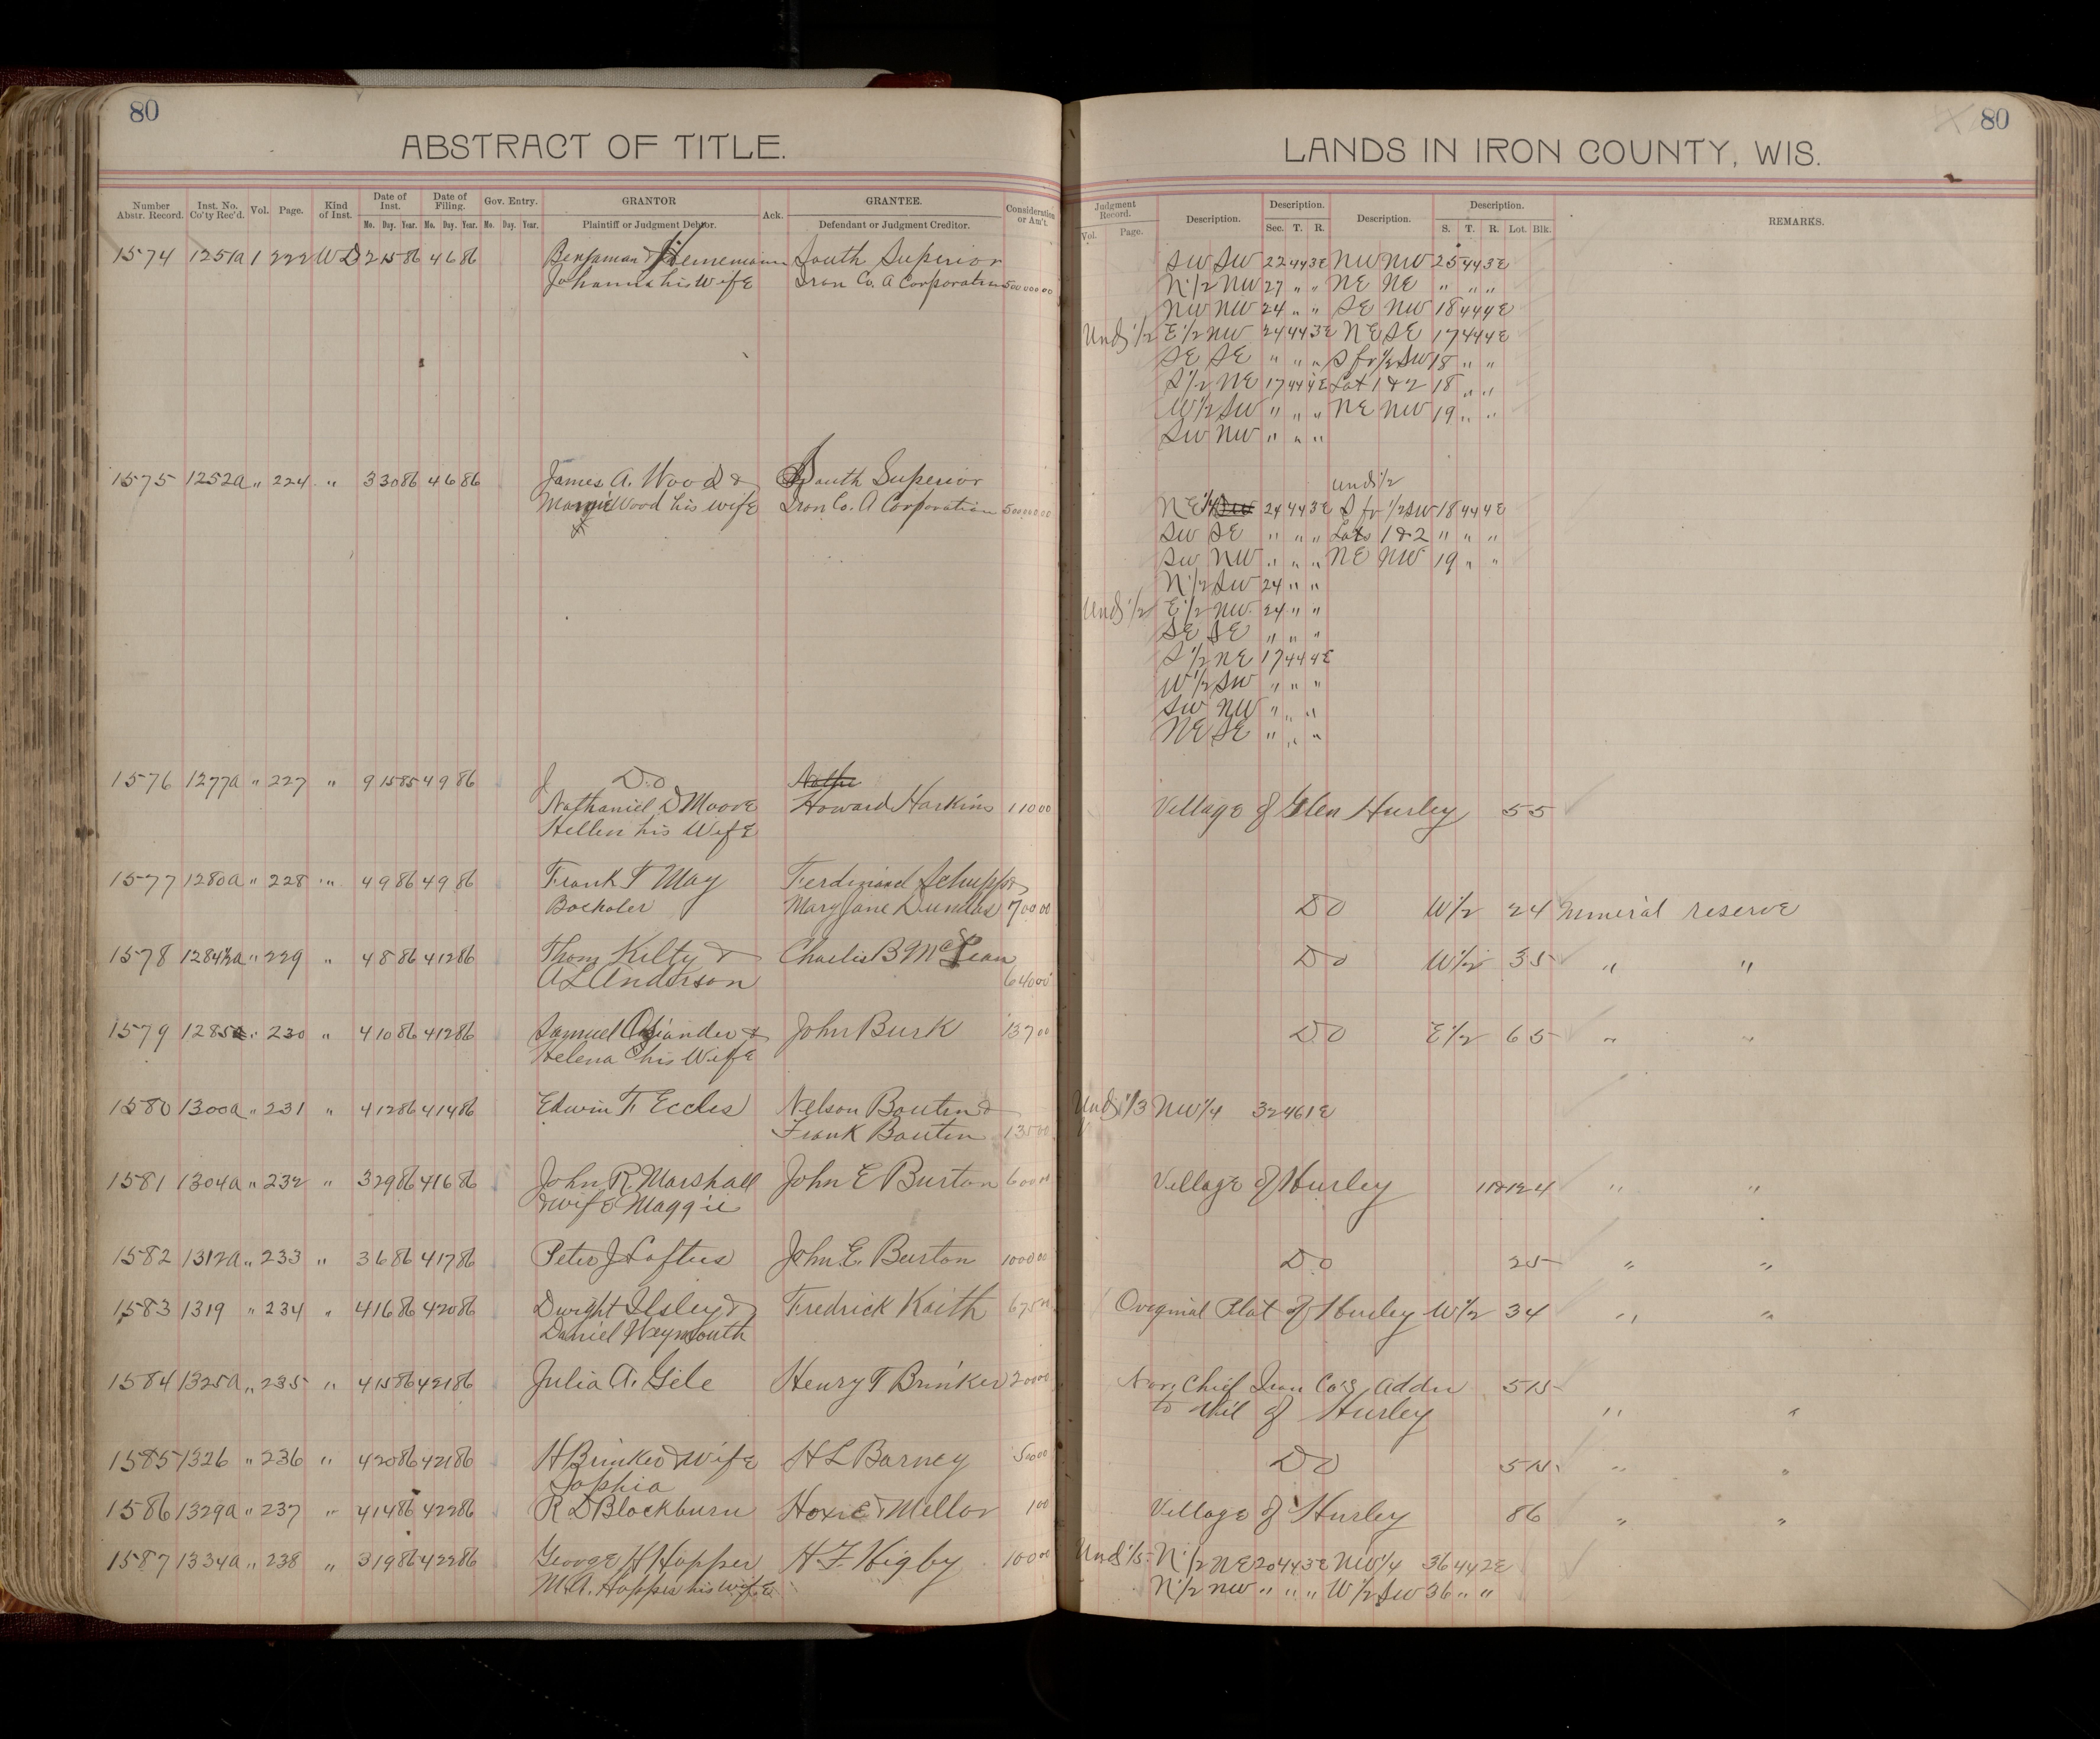 80
ABSTRACT OF TITLE.
Number Abstr. Record. Inst. No. Co'ty Rec'd. Vol. Page. Kind of Inst. Date of Inst. Date of Filing. Gov. Entry. GRANTOR Ack. GRANTEE. Consideration or Am't.
Mo. Day. Year. Mo. Day. Year. Mo. Day. Year. Plaintiff or Judgment Debtor. Defendant or Judgment Creditor.
1574 1251a 1 222 WD 2 15 86 4 6 86 Benjaman & Heinemann South Superior
Johanna his Wife Iron Co. A Corporation 50000 00
1575 1252a " 224 " 3 30 86 4 6 86 James A. Wood & South Superior
Margie Wood his wife Iron Co. A Corporation 50000 00
1576 1277a " 227 " 9 15 85 4 9 86 Do
Nathaniel D Moore Howard Harkins 110 00
Hellen his Wife
1577 1280a " 228 " 4 9 86 4 9 86 Frank T May Ferdinand Schupp &
Bachaler Mary Jane Dundas 700 00
1578 1284½a " 229 " 4 8 86 4 12 86 Thom Kilty & Charlie B McLean
A L Anderson 640 00
1579 1285a " 230 " 4 10 86 4 12 86 Samuel &
Helena his Wife John Burk 137 00
1580 1300a " 231 " 4 12 86 4 14 86 Edwin F. Eccles Nelson Boutin &
Frank Boutin 135 00
1581 1304a " 232 " 3 29 86 4 16 86 John R. Marshall John E Burton 600 00
& wife Maggie
1582 1312a " 233 " 3 6 86 4 17 86 Peter J Loftus John E. Burton 1000 00
1583 1319 " 234 " 4 16 86 4 20 86 Dwight Ilsley & Fredrick Kaith 675 00
Daniel Weymouth
1584 1325a " 235 " 4 15 86 4 21 86 Julia A. Gile Henry F Brinker 200 00
1585 1326 " 236 " " 4 20 86 4 21 86 H Brinker & Wife H L Barney 50 00
Sophia
1586 1329a " 237 " 4 14 86 4 22 86 R D Blackburn Hoxie & Mellor 1 00
1587 1334a " 238 " 3 19 86 4 22 86 George H Hopper H. F. Higby 100 00
M. A. Hopper his wife
80
LANDS IN IRON COUNTY, WIS.
Judgment Record. Description. Description. Description. Description. REMARKS.
Vol. Page. Sec. T. R. S. T. R. Lot. Blk.
SW SW 22 44 3E NW NW 25 44 3E
N ½ NW 27 " " NE NE " " "
NW NW 24 " " SE NW 18 44 4E
Und ½ E ½ NW 24 44 3E NE SE 17 44 4E
SE SE " " " S fr ½ SW 18 " "
S ½ NE 17 44 4E Lot 1 & 2 18 " "
W ½ SW " " " NE NW 19 " "
SW NW " " "
und ½
NE ¼ SW 24 44 3E S fr ½ SW 18 44 4E
SW SE " " " Lots 1 & 2 " " "
SW NW " " " NE NW 19 " "
N ½ SW 24 " "
Und ½ E ½ NW 24 " "
SE SE " " "
S ½ NE 17 44 4E
W ½ SW " " "
SW NW " " "
NE SE " " "
Village of Glen Hurley 5 5
Do W ½ 2 4 Mineral reserve
Do W ½ 3 5 " "
Do E ½ 6 5 " "
Und 1/3 NW ¼ 32 46 1E
Village of Hurley 11&12 4 " "
Do 2 5 " "
Original Plat of Hurley W ½ 3 4 " "
Nor. Chief Iron Co's Addn 5 15
to Vil of Hurley " "
Do 5 15 " "
Village of Hurley 8 6 " "
Und 1/5 N ½ NE 20 44 3E NW ¼ 36 44 2E
N ½ NW " " " W ½ SW 36 " "